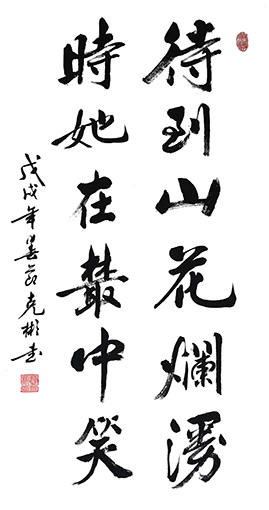 待到山花爛漫
時她在叢中笑
戊戌年克彬書